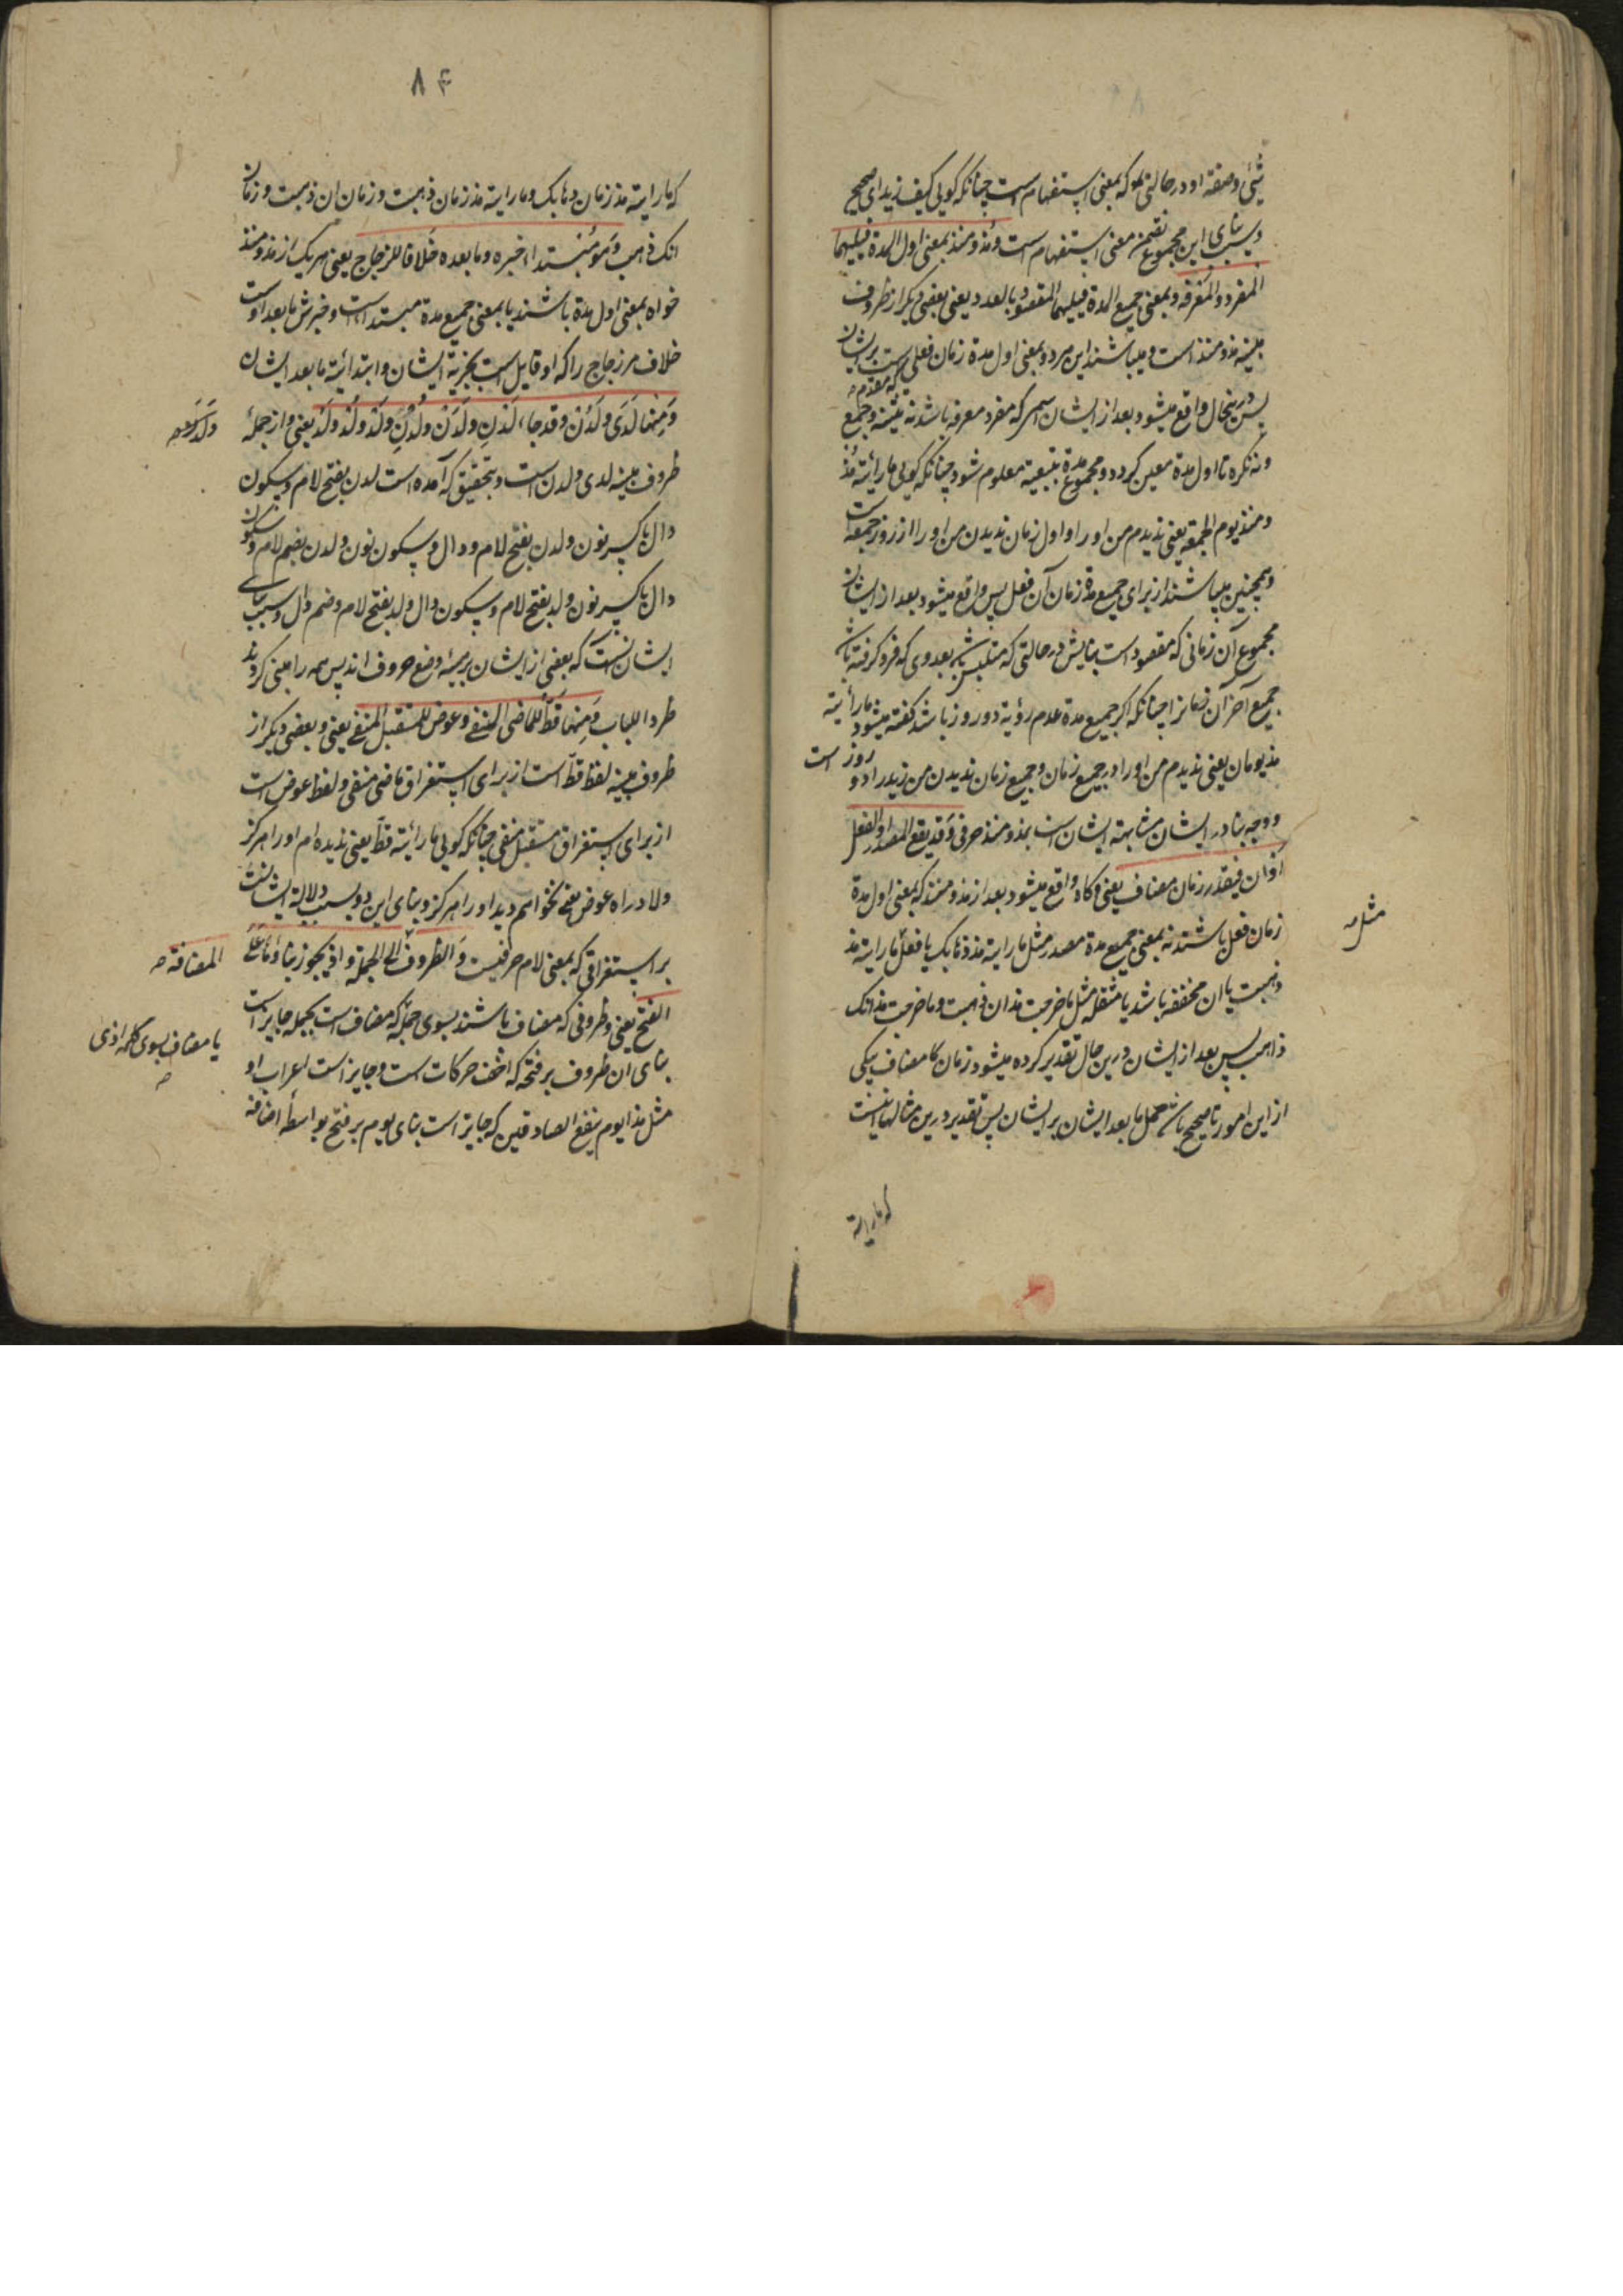 شیئی و صفة او در حالتی بلوکه بمعنی استفهام است چنانکه کویی کیف زید ای صحیح
و سبب بنای این مجموع تضمن معنی استفهام است و مذ و منذ بمعنی اول المدة فیلیهما
المفرد و المعرفه و بمعنی جمیع المدة فیلیهما المقصود بالعدد یعنی بعضی دیکر از ظروف
مبنیه مذ و منذ است و میباشند این هر دو بمعنی اول مدة زمان فعلی که مقدم است بر ایشان
پس درینحال واقع میشود بعد از ایشان اسمی که مفرد معرفه باشد نه تثنیه و جمع
و نه نکره تا اول مدة معین کردد و مجموع مدة بتبعیة معلوم شود چنانکه کویی ما رأیته مذ
و منذ یوم الجمعة یعنی ندیدم من او را و اول زمان ندیدن من او را از روز جمعه است
و همچنین میباشند از برای جمیع مدة زمان آن فعل پس واقع میشود بعد از ایشان
مجموع آن زمانی که مقصود است بیانش در حالتی که متلبس باشد بعددی که فرو کرفته باشد
جمیع آخر آن زمانرا چنانکه اکر جمیع مدة عدم رؤیة دو روز باشد کفته میشود ما رأیته
مذ یومان یعنی ندیدم من او را در جمیع زمان و جمیع زمان ندیدن من زید را دو روز است
و وجه بنا در ایشان مشابهة ایشان است بمذ و منذ حرفی و قد یقع المصدر او الفعل
او ان فیقدر زمان مضاف یعنی و کاه واقع میشود بعد از مذ و منذ که بمعنی اول مدة
زمان فعل باشند نه بمعنی جمیع مدة مصدر مثل ما رایته مذ ذهابک یا فعل ما رایته مذ
مثل
ذهبت یا ان مخففه باشد یا مثقله مثل ما خرجت مذ ان ذهبت و ما خرجت مذ انک
ذاهب پس بعد از ایشان درین حال تقدیر کرده میشود زمان که مضاف بیکی
از این امور تا صحیح باشد حمل ما بعد ایشان بر ایشان پس تقدیر درین مثالها اینست
که ما رایته
۸۴
که ما رایته مذ زمان ذهابک و ما رایته مذ زمان ذهبت و زمان ان ذهبت و زمان
انک ذاهب و هو مبتدا خبره ما بعده خلافا للزجاج یعنی هر یک از مذ و منذ
خواه بمعنی اول مدة باشند یا بمعنی جمیع مدة مبتدا است و خبرش ما بعد اوست
خلاف مر زجاج را که او قایل است بخبریة ایشان و ابتدائیة ما بعد ایشان
و منها لدی و لدن و قد جاء لدن و لدن و لدن و لد و لد و لد یعنی و از جملهٔ
ظروف مبنیه لدی و لدن است و بتحقیق که آمده است لدن بفتح لام و سکون
دال با کسر نون و لدن بفتح لام و دال و سکون نون و لدن بضم لام و سکون
دال با کسر نون و لد بفتح لام و سکون دال و لد بفتح لام و ضم دال و سبب بنای
ایشان آنست که بعضی از ایشان بر هیئة وضع حروف اند پس همه را مبنی کردند
طردا للباب و منها قط للماضی المنفی و عوض للمستقبل المنفی یعنی و بعضی دیکر از
ظروف مبنیه لفظ قط است از برای استغراق ماضی منفی و لفظ عوض است
از برای استغراق مستقبل منفی چنانکه کویی ما رأیته قط یعنی ندیده ام او را هرکز
و لا اراه عوض یعنی نخواهم دید او را هرکز و بنای این دو بسبب دلالة ایشانست
بر استغراقی که بمعنی لام حرفیست و الظروف الی الجملة و اذ یجوز بناؤها علی
المضافة صه
الفتح یعنی و ظروفی که مضاف باشند بسوی جمله که مضاف است بجمله جایز است
یا مضاف بسوی کلمه اذی صه
بنای ان ظروف بر فتحه که اخف حرکات است و جایز است اعراب او
مثل هذا یوم ینفع الصادقین که جایز است بنای یوم بر فتح بواسطهٔ اضافه